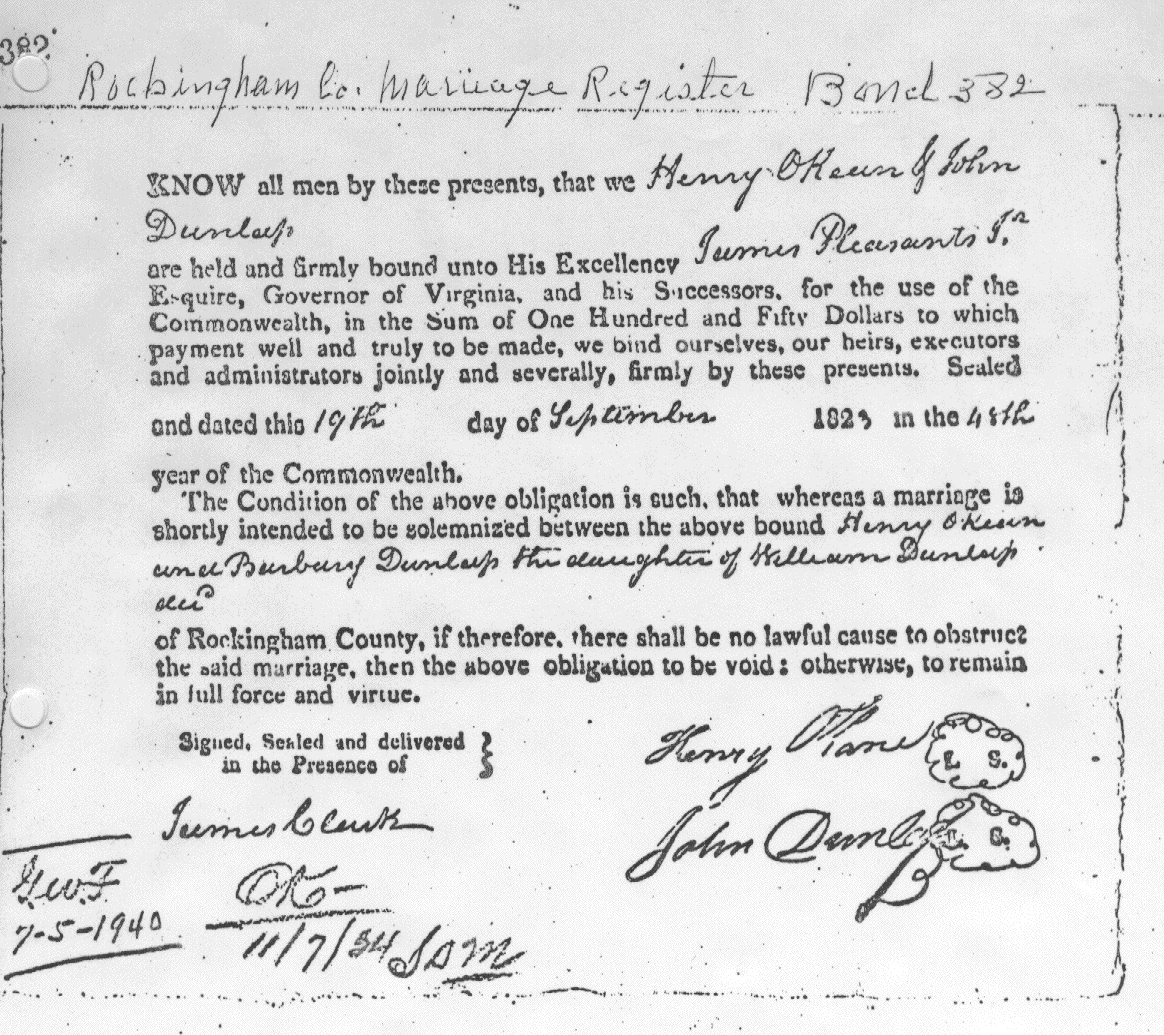 382
Rockingham Co. Marriage Register Bond 382
KNOW all men by these presents, that we Henry OKeen & John
Dunlap
are held and firmly bound unto His Excellency James Pleasants Jr
Esquire, Governor of Virginia, and his Successors, for the use of the
Commonwealth, in the Sum of One Hundred and Fifty Dollars to which
payment well and truly to be made, we bind ourselves, our heirs, executors
and administrators jointly and severally, firmly by these presents. Sealed
and dated this 19th day of September 1823 in the 48th
year of the Commonwealth.
The Condition of the above obligation is such, that whereas a marriage is
shortly intended to be solemnized between the above bound Henry OKeen
and Barbary Dunlap the daughter of William Dunlap
decd
of Rockingham County, if therefore, there shall be no lawful cause to obstruct
the said marriage, then the above obligation to be void: otherwise, to remain
in full force and virtue.
Signed, Sealed and delivered }
in the Presence of
Henry OKane L. S.
James Clark
John Dunlap L. S.
7-5-1940
OK-
11/7/34